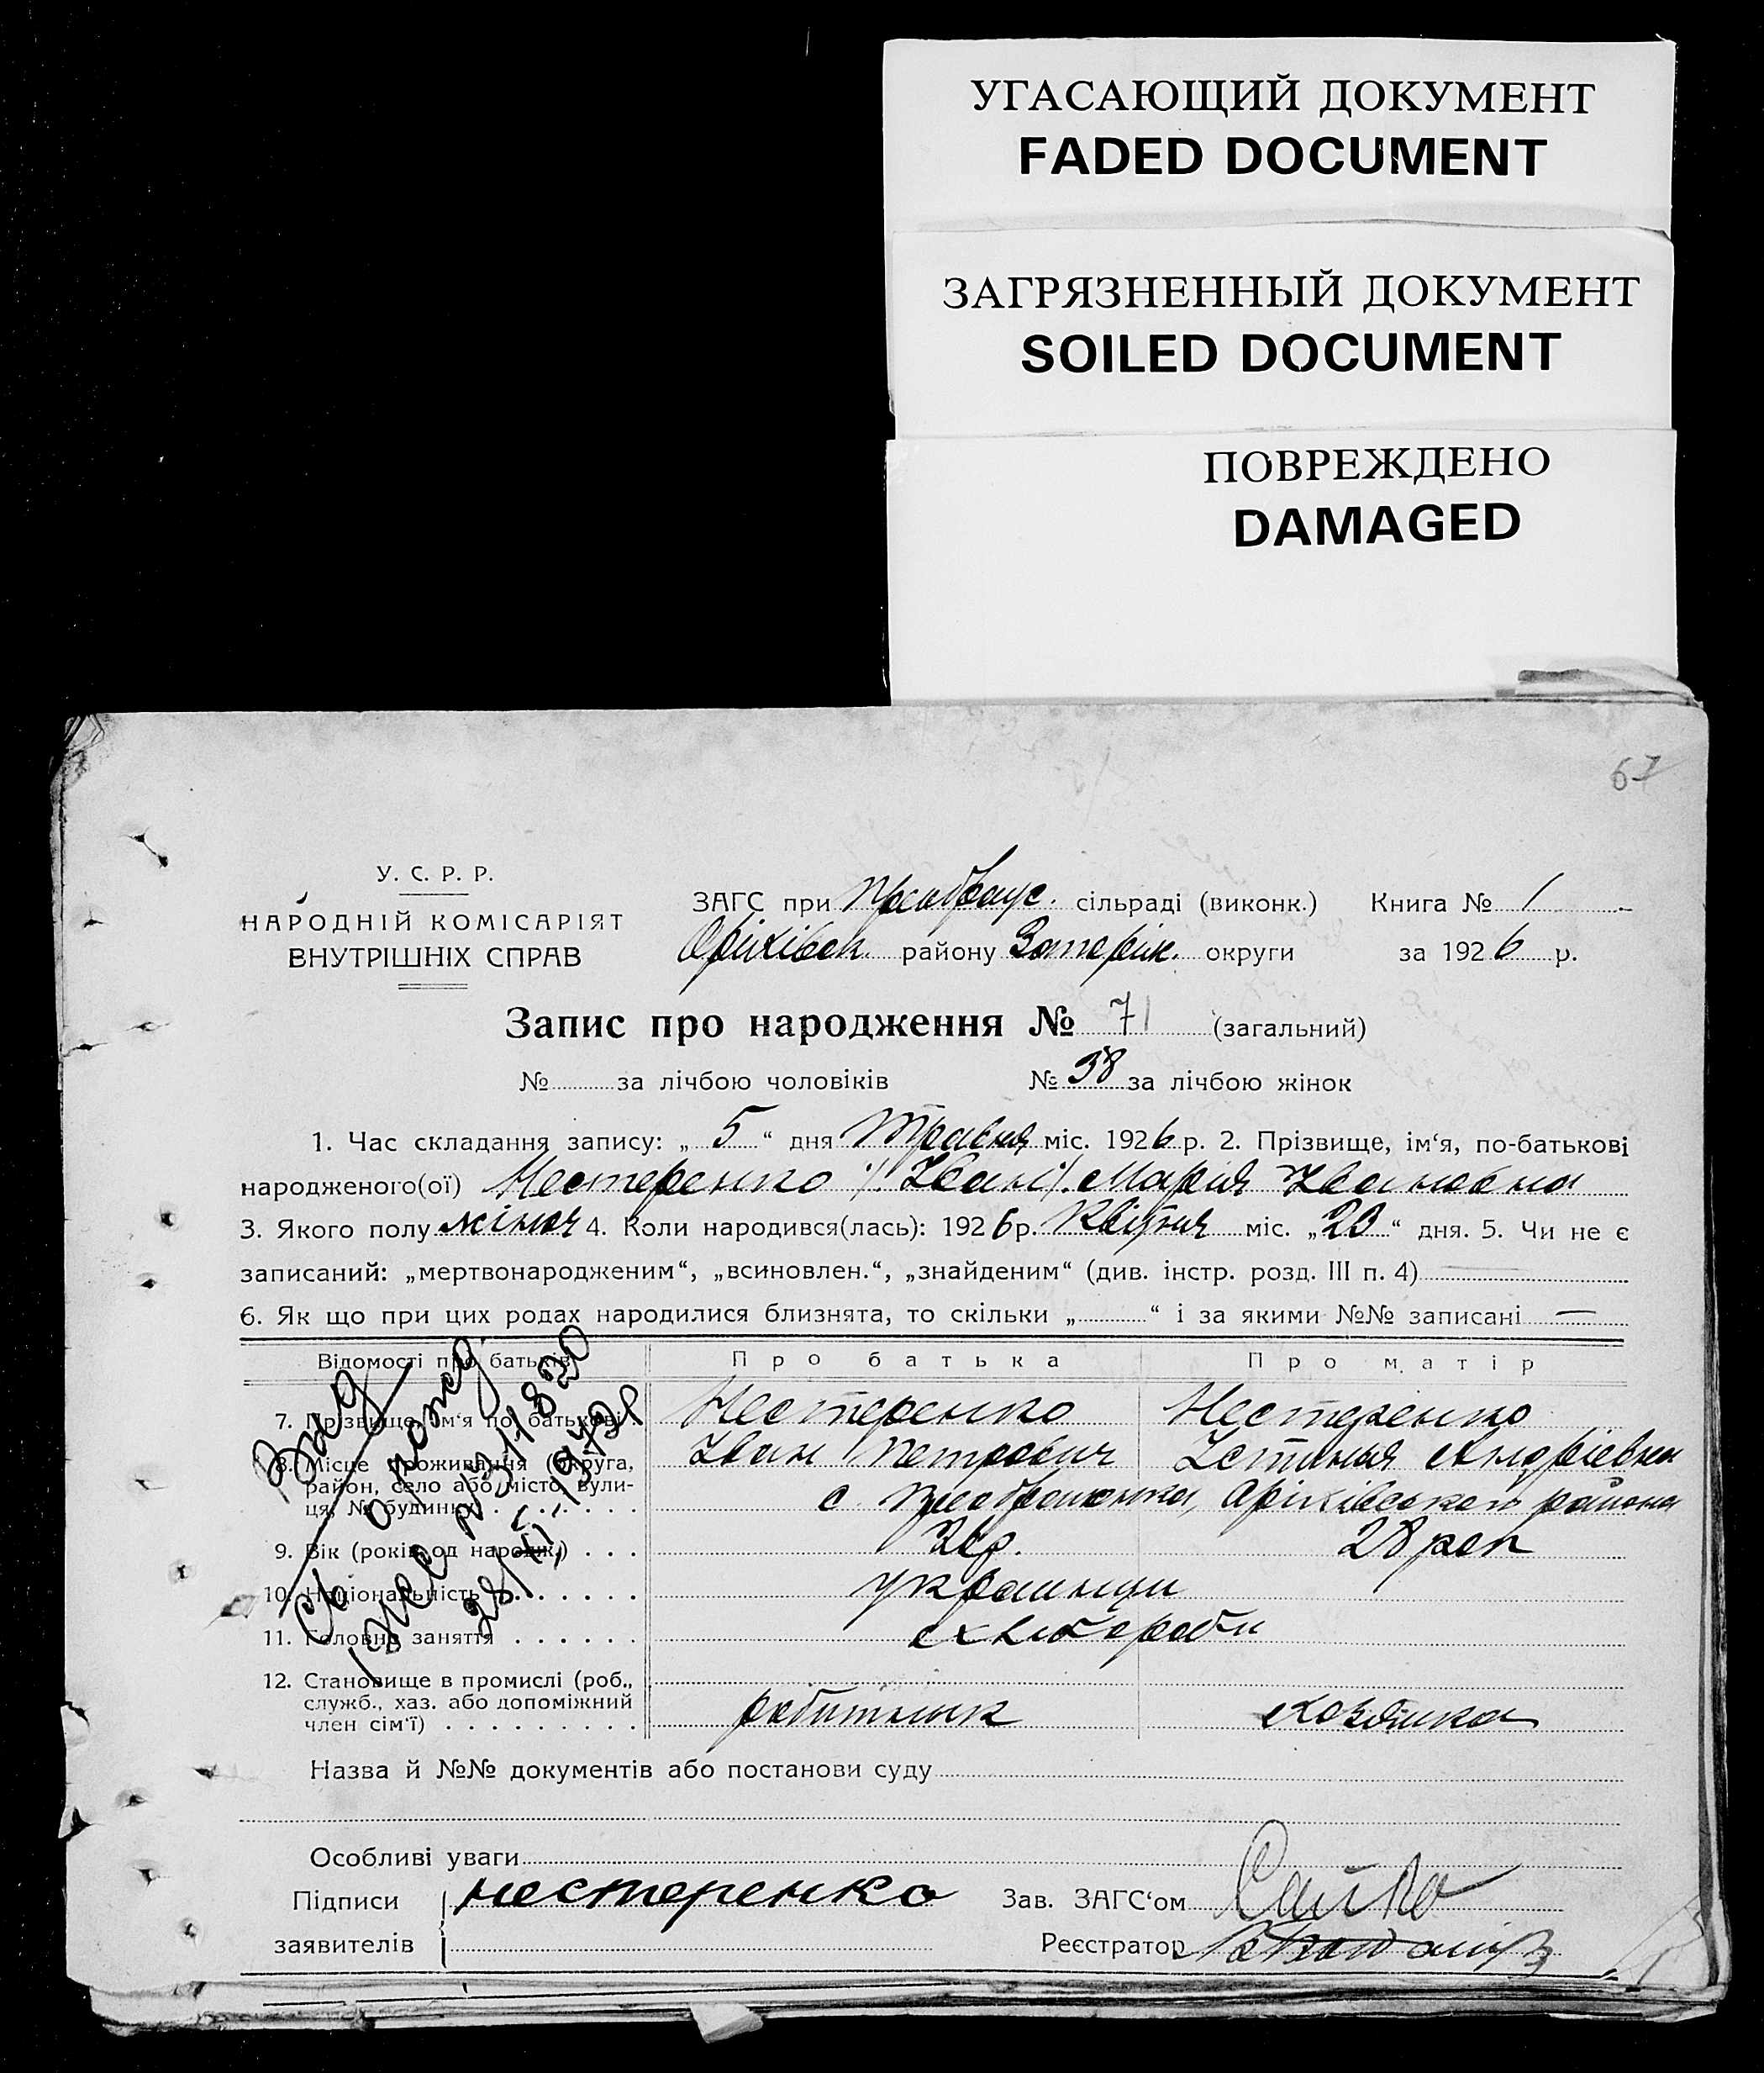 УГАСАЮЩИЙ ДОКУМЕНТ
FADED DOCUMENT
ЗАГРЯЗНЕННЫЙ ДОКУМЕНТ
SOILED DOCUMENT
ПОВРЕЖДЕНО
DAMAGED
67
У. С. Р. Р.
НАРОДНІЙ КОМІСАРІЯТ
ВНУТРІШНІХ СПРАВ
ЗАГС при Преображ. сільраді (виконк.) Книга № 1
Оріхівськ. району Запоріж. округи за 1926 р.
Запис про народження № 71 (загальний)
№ за лічбою чоловіків № 38 за лічбою жінок
1. Час складання запису: „ 5 “ дня Травня міс. 1926 р. 2. Прізвище, ім‘я, по-батькові
народженого(ої) Нестеренко /. Іван /. Марія Івановна
3. Якого полу жіноч 4. Коли народився(лась): 1926 р. Квітня міс. „20“ дня. 5. Чи не є
записаний: „мертвонародженим“, „всиновлен.“, „знайденим“ (див. інстр. розд. III п. 4)
6. Як що при цих родах народилися близнята, то скільки „ “ і за якими №№ записані —
Відомості про батьків Про батька Про матір
7. Прізвище, ім‘я по батькові Нестеренко Нестеренко
Іван Петрович Устинья Андріевна
8. Місце проживання (округа, район, село або місто, вулиця, № будинку) с. Преображенка, Оріхівського района
9. Вік (років од народж.) 28 рок
10. Національність українци
11. Головне заняття хлібороби
12. Становище в промислі (роб.,
служб., хаз. або допоміжний
член сім‘ї) робитник хозяйка
Назва й №№ документів або постанови суду
Особливі уваги
Підписи Нестеренко Зав. ЗАГС‘ом
заявителів Реєстратор